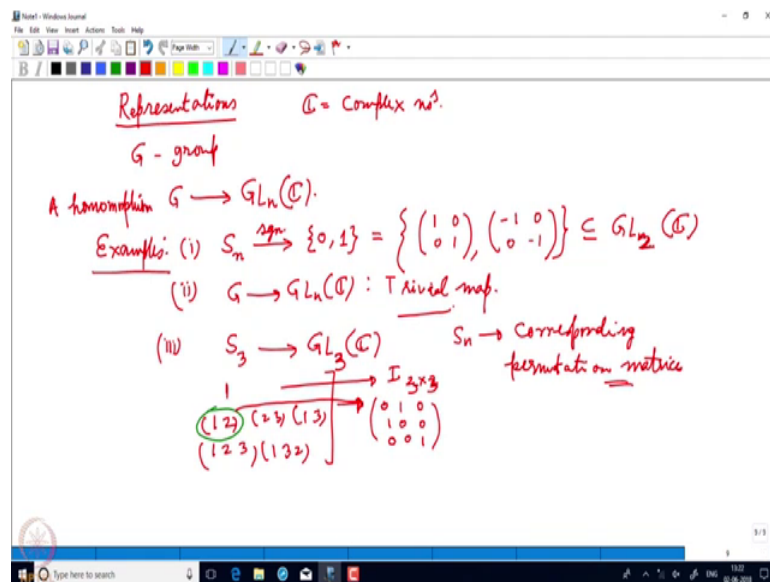 Note1 - Windows Journal
File Edit View Insert Actions Tools Help
Page Width
B I
Representations ℂ = Complex no^s.
G - group
A homomorphism G → GL_n(ℂ).
Examples: (i) S_n \xrightarrow{sgn} {0, 1} = { \begin{pmatrix} 1 & 0 \\ 0 & 1 \end{pmatrix}, \begin{pmatrix} -1 & 0 \\ 0 & -1 \end{pmatrix} } ⊆ GL_2(ℂ)
(ii) G → GL_n(ℂ) : Trivial map.
(iii) S_3 → GL_3(ℂ) S_n → Corresponding
permutation matrice
1 → I_{3×3}
(1 2) (2 3) (1 3) → \begin{pmatrix} 0 & 1 & 0 \\ 1 & 0 & 0 \\ 0 & 0 & 1 \end{pmatrix}
(1 2 3) (1 3 2)
9/9
9
Type here to search
ENG
13:22
02-06-2018